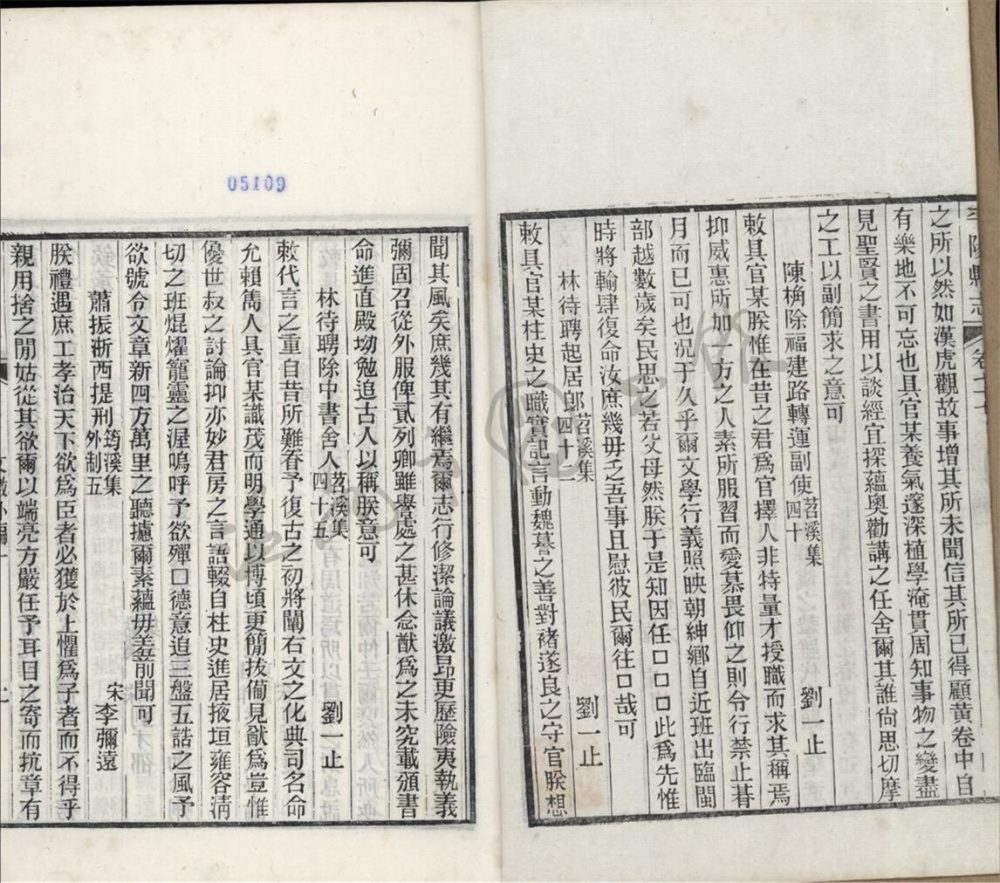 之所以然如漢虎觀故事增其所未聞信其所已得顧黃卷中自
有樂地不可忘也具官某養氣邃深植學淹貫周知事物之變盡
見聖賢之書用以談經宜探蘊奧勸講之任舍爾其誰尙思切摩
之工以副簡求之意可
陳桷除福建路轉運副使 苕溪集四十 劉一止
敕具官某朕惟在昔之君爲官擇人非特量才授職而求其稱焉
抑威惠所加一方之人素所服習而愛慕畏仰之則令行禁止朞
月而已可也况于久乎爾文學行義照映朝紳鄉自近班出臨閩
部越數歲矣民思之若父母然朕于是知因任口口口此爲先惟
時將輸肆復命汝庶幾毋乏吾事且慰彼民爾往口哉可
林待聘起居郎 苕溪集四十二 劉一止
敕具官某柱史之職實記言動魏謩之善對褚遂良之守官朕想
聞其風矣庶幾其有繼焉爾志行修潔論議激昂更歷險夷執義
彌固召從外服俾貳列卿雖譽處之甚休念猷爲之未究載頒書
命進直殿坳勉追古人以稱朕意可
林待聘除中書舍人 苕溪集四十五 劉一止
敕代言之重自昔所難眷予復古之初將闡右文之化典司名命
允賴雋人具官某識茂而明學通以博頃更簡拔備見猷爲豈惟
優世叔之討論抑亦妙君房之言語輟自柱史進居掖垣雍容淸
切之班焜燿寵靈之渥嗚呼予欲殫口德意追三盤五誥之風予
欲號令文章新四方萬里之聽攄爾素蘊毋羞前聞可
蕭振浙西提刑 筠溪集外制五 宋李彌遠
朕禮遇庶工孝治天下欲爲臣者必獲於上懼爲子者而不得乎
親用捨之閒姑從其欲爾以端亮方嚴任予耳目之寄而抗章有
05109